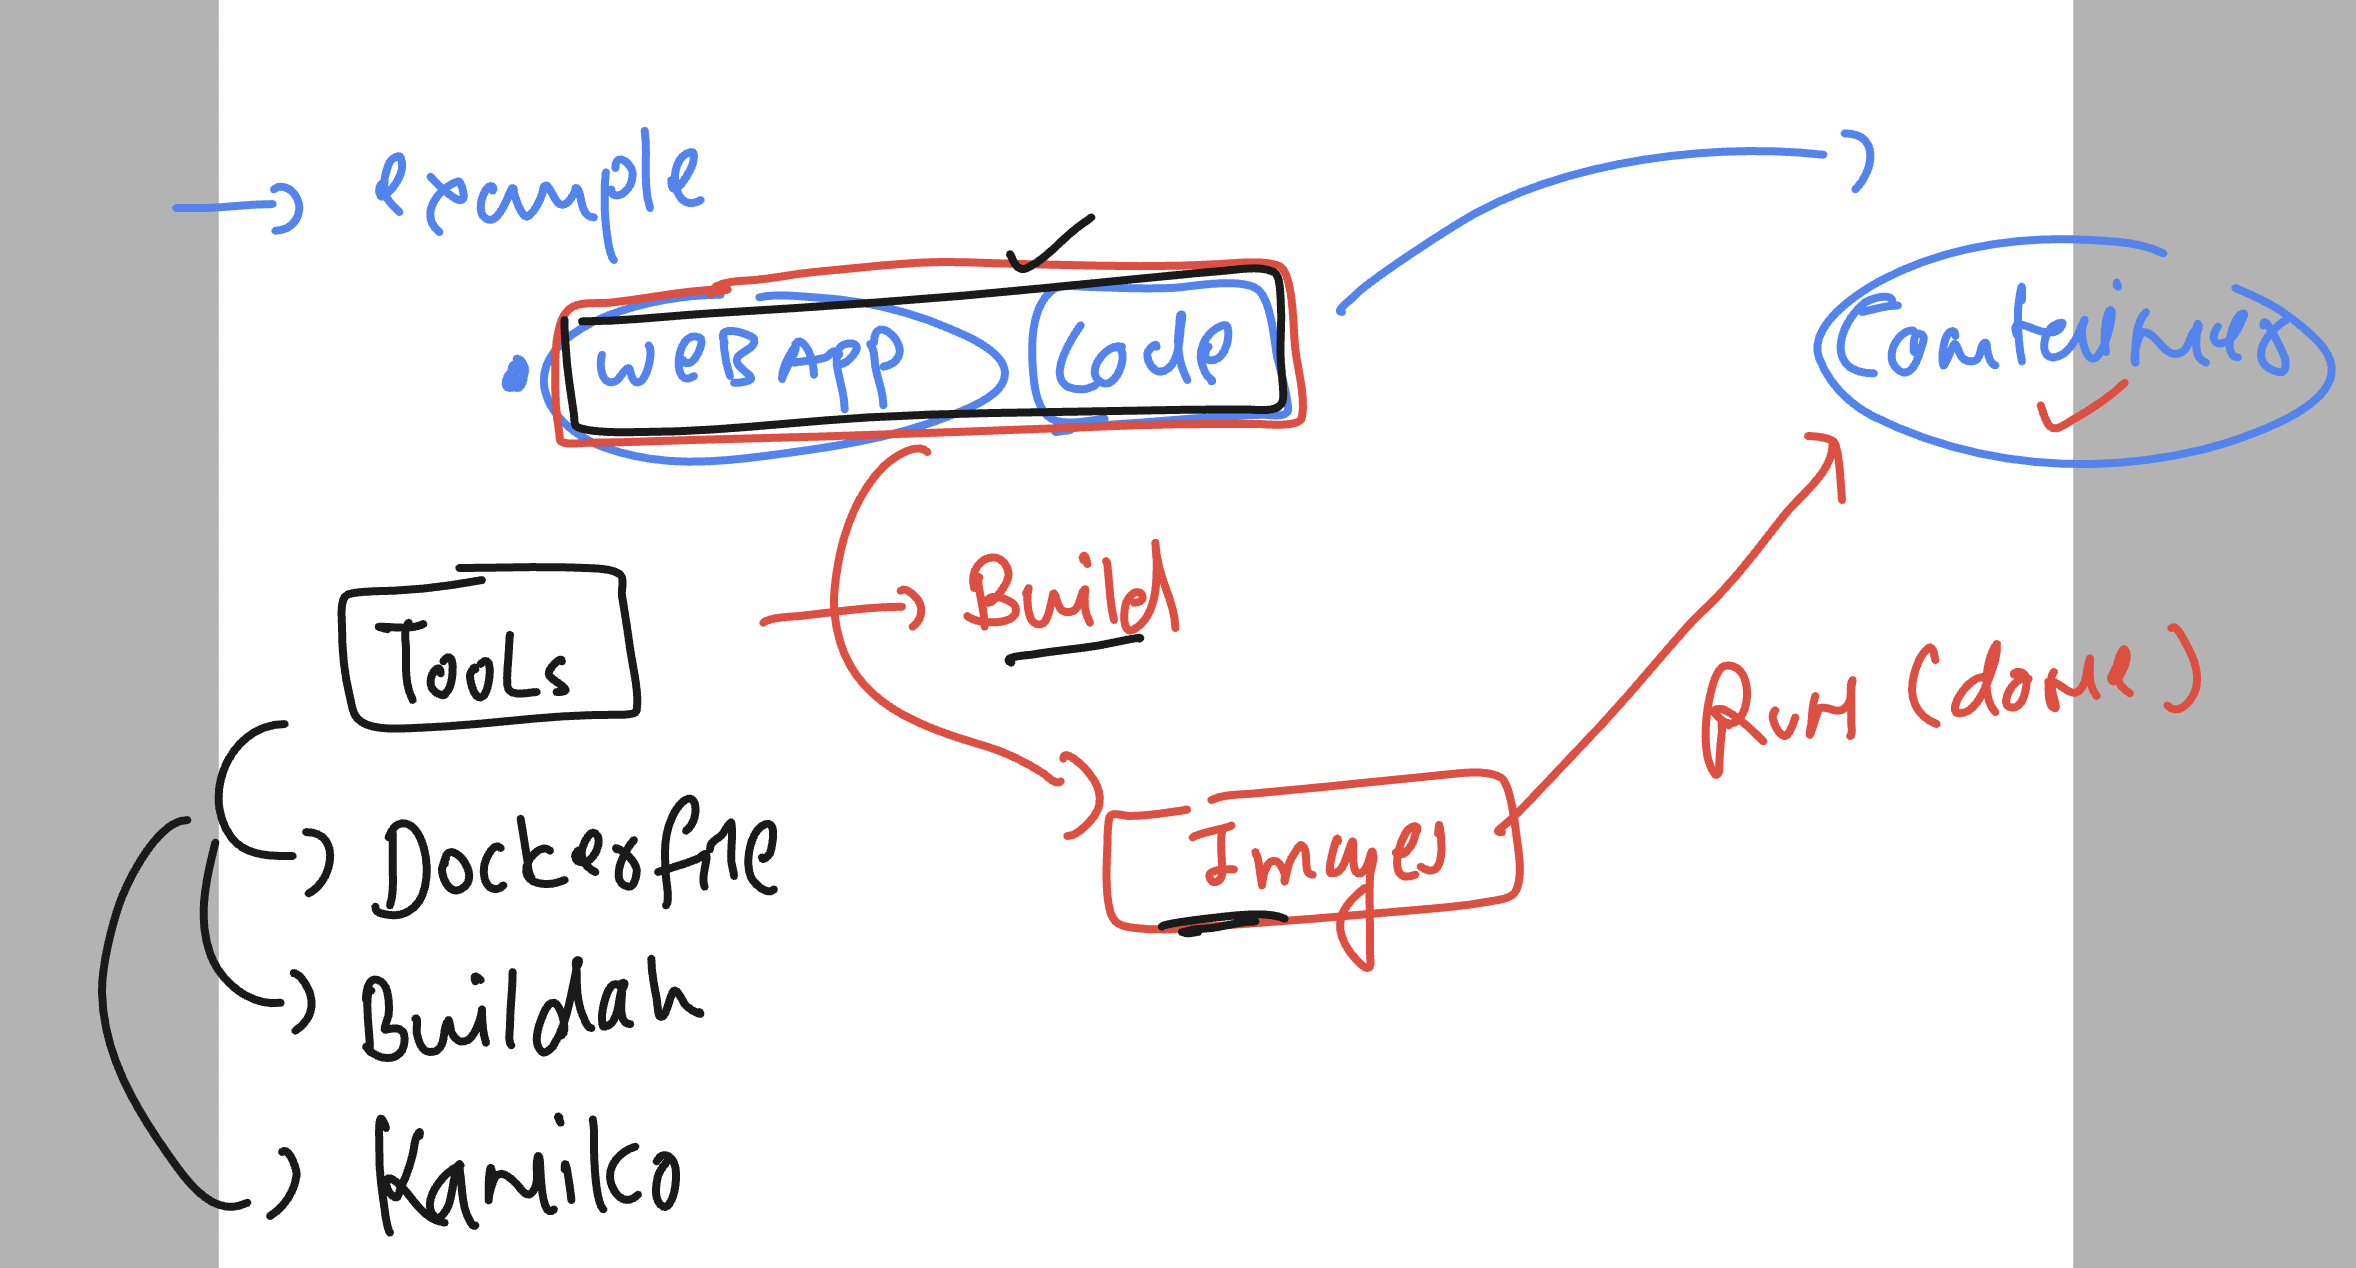 example
WEBAPP Code
Containers
Build
Tools
Run (done)
Dockerfile
Images
Buildah
Kaniko